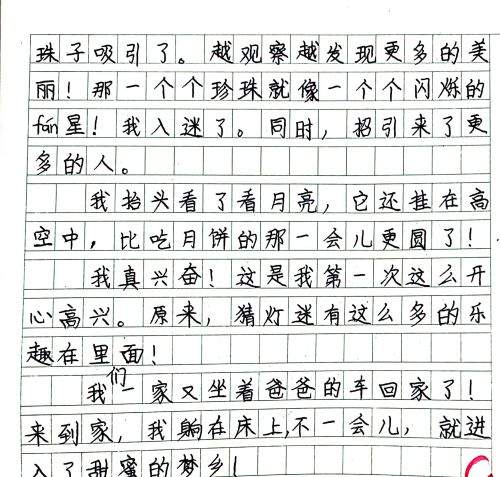 珠子吸引了。越观察越发现更多的美
丽！那一个个珍珠就像一个个闪烁的
fán星！我入迷了。同时，招引来了更
多的人。
我抬头看了看月亮，它还挂在高
空中，比吃月饼的那一会儿更圆了！
我真兴奋！这是我第一次这么开
心高兴。原来，猜灯迷有这么多的乐
趣在里面！
我们一家又坐着爸爸的车回家了！
来到家，我躺在床上,不一会儿，就进
入了甜蜜的梦乡！